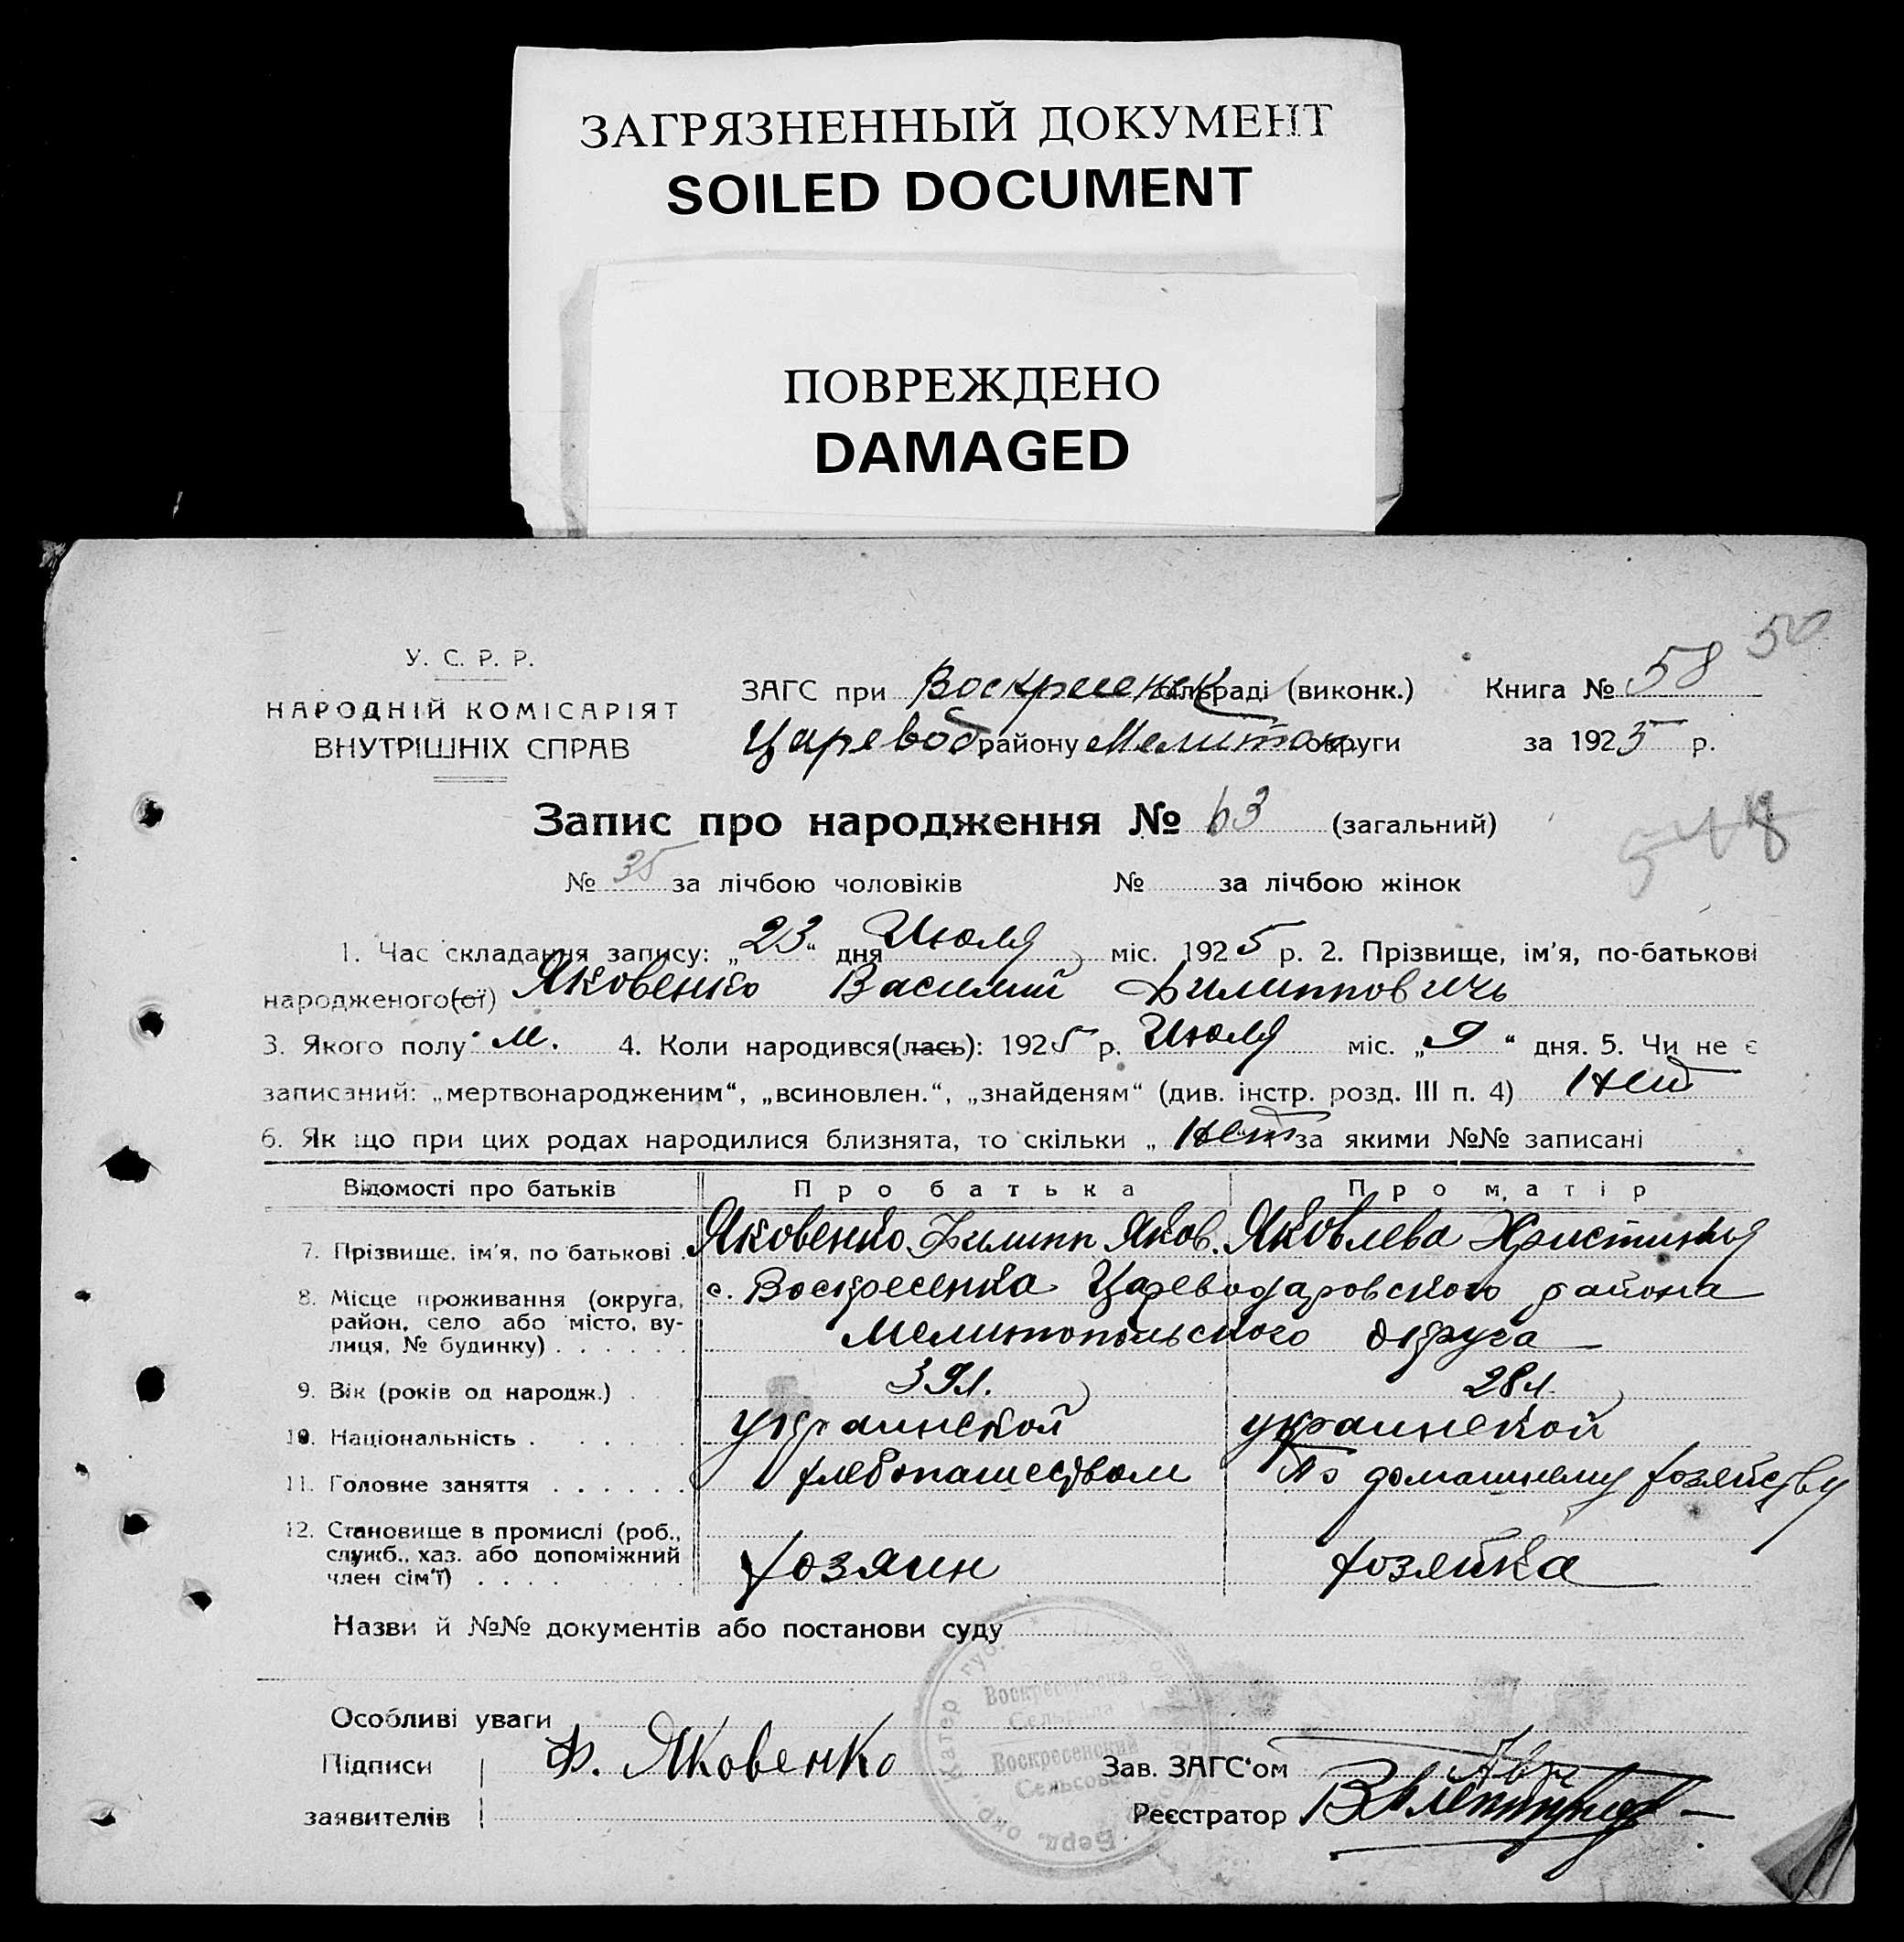 ЗАГРЯЗНЕННЫЙ ДОКУМЕНТ
SOILED DOCUMENT
ПОВРЕЖДЕНО
DAMAGED
50
У. С. Р. Р.
НАРОДНІЙ КОМІСАРІЯТ
ВНУТРІШНІХ СПРАВ
ЗАГС при Воскресенск сільраді (виконк.) Книга № 58
Царевод району Мелитоп округи за 1925 р.
Запис про народження № 63 (загальний)
548
№ 35 за лічбою чоловіків № за лічбою жінок
1. Час складання запису: „23“ дня Июля міс. 1925 р. 2. Прізвище, ім'я, по-батькові
народженого(ої) Яковенко Василий Филипповичь
3. Якого полу м. 4. Коли народився(лась): 1925 р. Июля міс. „9“ дня. 5. Чи не є
записаний: „мертвонародженим“, „всиновлен.“, „знайденям“ (див. інстр. розд. III п. 4) Нет
6. Як що при цих родах народилися близнята, то скільки „ Нет за якими №№ записані
Відомості про батьків Про батька Про матір
7. Прізвище, ім'я, по батькові . Яковенко Филипп Яков. Яковлева Христинья
8. Місце проживання (округа, район, село або місто, вулиця, № будинку) . . . . . . с. Воскресенка Царевода­ровского района
Мелитопольского округа
9. Вік (років од народж.) . 39 л. 28 л.
10. Національність . . . . . украинской украинской
11. Головне заняття . . . . . . хлебопашеством По домашнему хозяйству
12. Становище в промислі (роб., служб., хаз. або допоміжний член сім'ї) . . . . хозяин хозяйка
Назви й №№ документів або постанови суду
Особливі уваги
Підписи заявителів Ф. Яковенко
Зав. ЗАГС'ом
Реєстратор
Воскресенська
Сельрада
Воскресенский
Сельсовет
Катер губ.
Берд. окр.